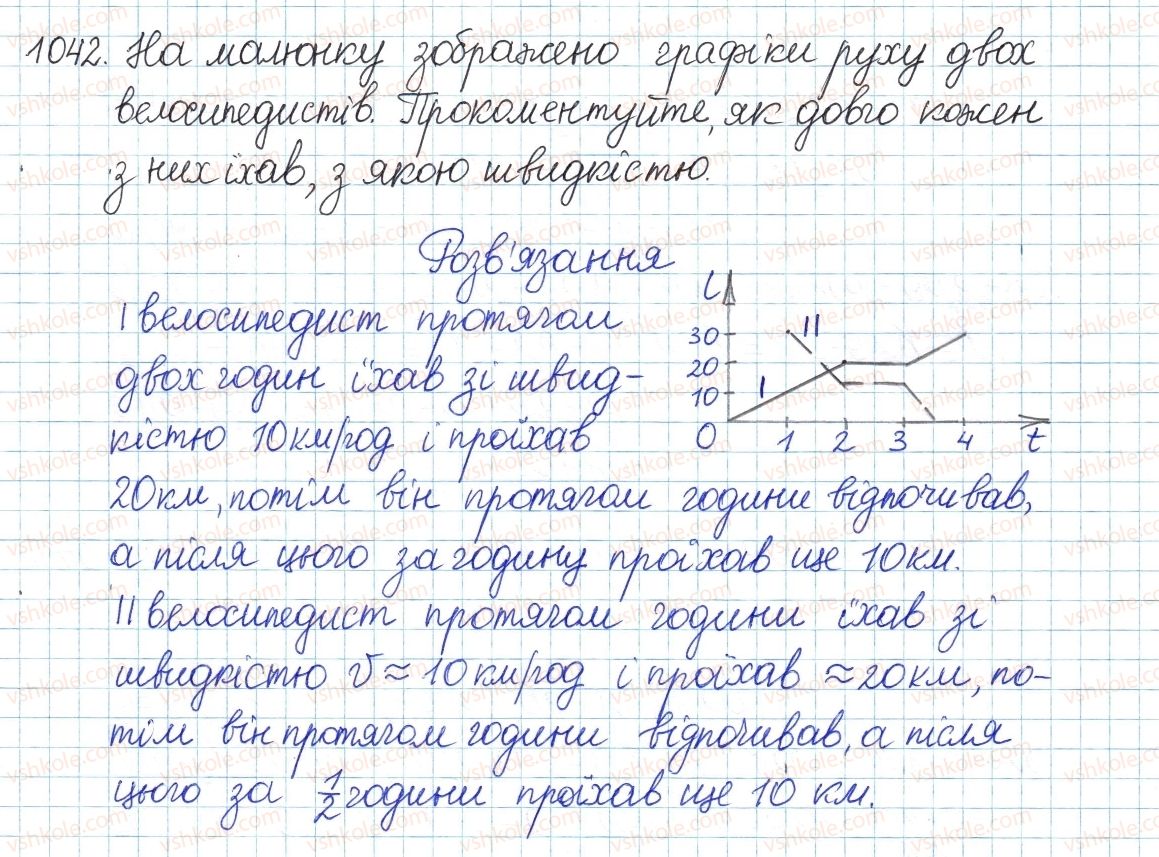 1042. На малюнку зображено графіки руху двох
велосипедистів. Прокоментуйте, як довго кожен
з них їхав, з якою швидкістю.
Розв'язання
I велосипедист протягом
двох годин їхав зі швид-
кістю 10 км/год і проїхав
20 км, потім він протягом години відпочивав,
а після цього за годину проїхав ще 10 км.
II велосипедист протягом години їхав зі
швидкістю v ≈ 10 км/год і проїхав ≈ 20 км, по-
тім він протягом години відпочивав, а після
цього за 1/2 години проїхав ще 10 км.
L
30
20
10
0 1 2 3 4 t
I
II
vshkole.com